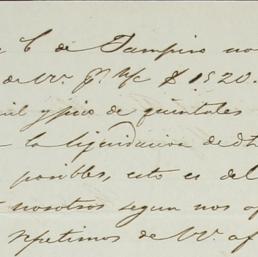 C de Tampico no
de VV. p. m/c $ 1520.
mil y pico de quintales
la liquidacion de dh
posibles, esto es del
nosotros segun nos
repetimos de VV. af